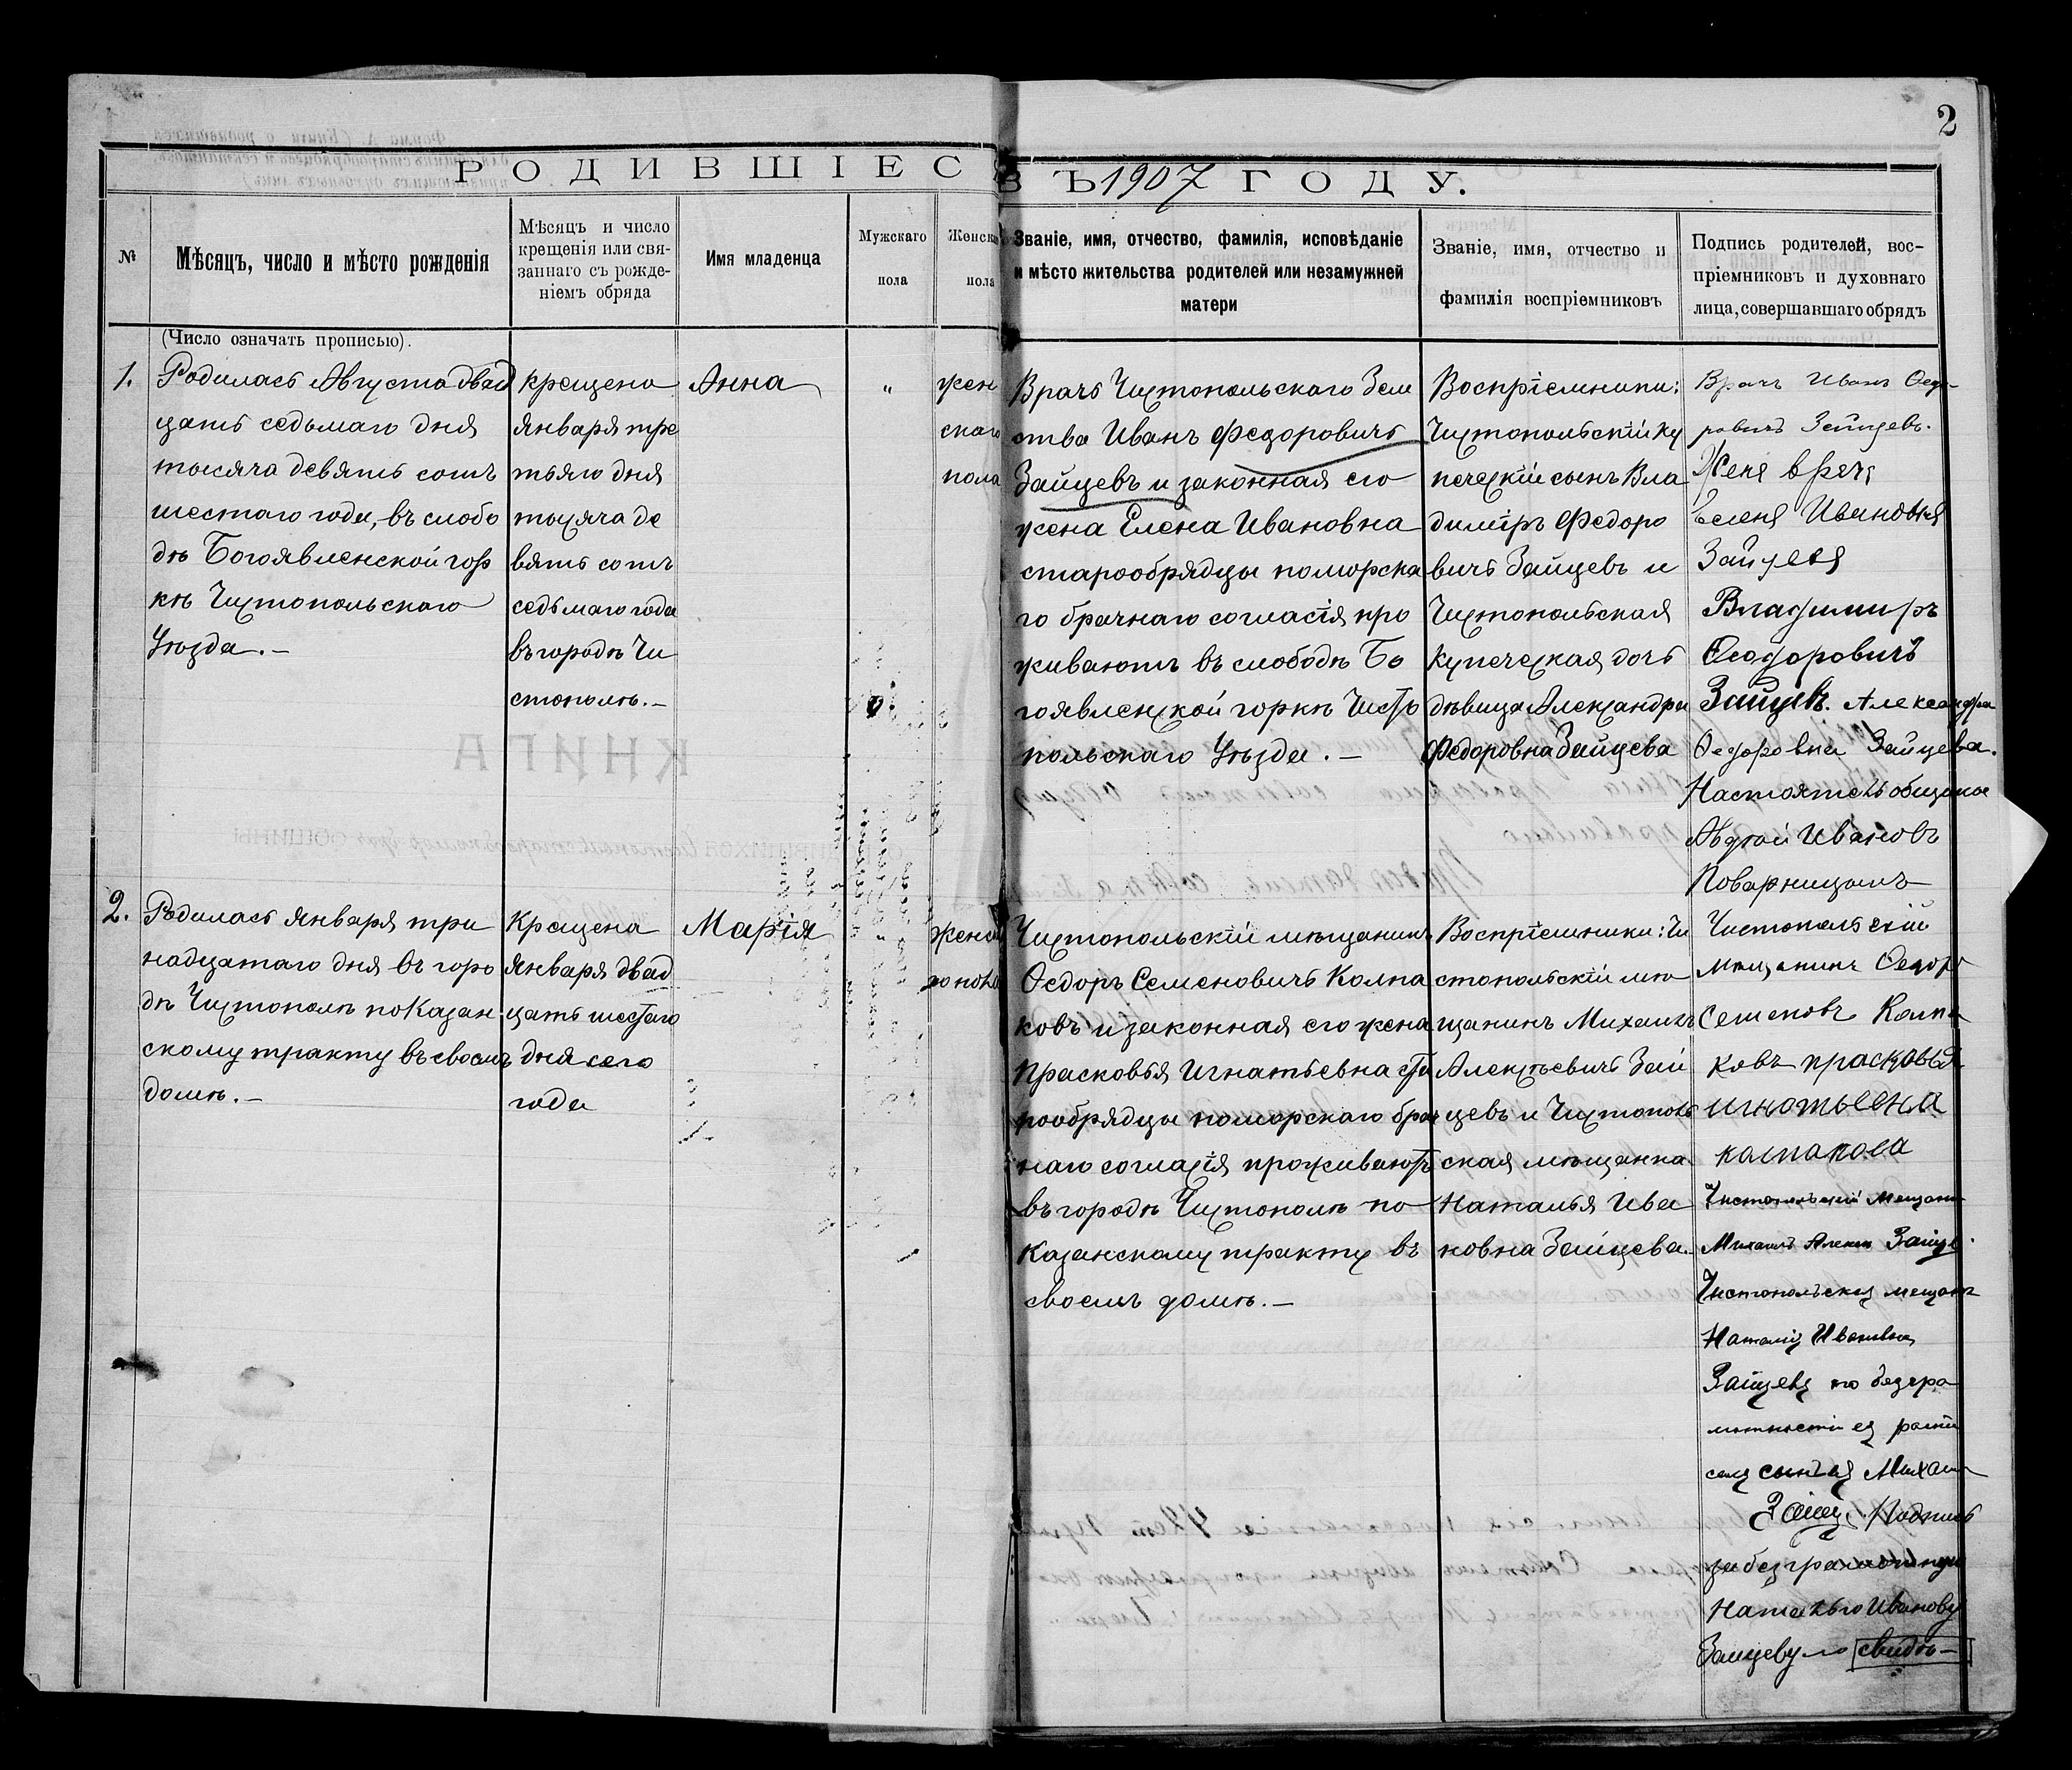 2
РОДИВШІЕС
ВЪ 1907 ГОДУ.
№
Мѣсяцъ, число и мѣсто рожденія
Мѣсяцъ и число
крещенія или свя-
заннаго съ рожде-
ніемъ обряда
Имя младенца
Мужскаго
пола
Женска
пола
Званіе, имя, отчество, фамилія, исповѣданіе
и мѣсто жительства родителей или незамужней
матери
Званіе, имя, отчество и
фамилія воспріемниковъ
Подпись родителей, вос-
пріемниковъ и духовнаго
лица, совершавшаго обрядъ
(Число означать прописью).
1.
Родилась Августа двад
цать седьмаго дня
тысяча девять сотъ
шестаго года, въ слобо
дѣ Богоявленской гор
кѣ Чистопольскаго
Уѣзда.-
крещена
Января тре
тьяго дня
тысяча де
вять сотъ
седьмаго года
въ городѣ Чи
стополѣ.-
Анна
"
жен
скаго
пола
Врачъ Чистопольскаго Зем
ства Иванъ Федоровичъ
Зайцевъ и законная его
жена Елена Ивановна
старообрядцы поморска
го брачнаго согласія про
живаютъ въ слободѣ Бо
гоявленской горкѣ Чисто
польскаго Уѣзда.-
Воспріемники:
Чистопольскій ку
печескій сынъ Вла
димiръ Федоро
вичъ Зайцевъ и
Чистопольская
купеческая дочь
дѣвица Александра
Федоровна Зайцева
Врачъ Иванъ Ѳедо-
ровичъ Зайцевъ.
Жена врача
Елена Ивановна
Зайцева
Владимиръ
Ѳеодоровичъ
Зайцевъ. Александра
Ѳедоровна Зайцева.
Настоятель общины
Авдѣй Ивановъ
Поварницынъ
2.
Родилась Января три
надцатаго дня въ горо
дѣ Чистополѣ по Казан
скому тракту въ своемъ
домѣ.-
Крещена
Января двад
цать шестаго
дня сего
года
Марія
женска
го пола
Чистопольскій мѣщанинъ
Ѳедоръ Семеновичъ Колпа
ковъ и законная его жена
Прасковья Игнатьевна ста
рообрядцы поморскаго брач
наго согласія проживаютъ
въ городѣ Чистополѣ по
Казанскому тракту въ
своемъ домѣ.-
Воспріемники: Чи
стопольскій мѣ
щанинъ Михаилъ
Алексѣевичъ Зай
цевъ и Чистополь
ская мѣщанка
Наталья Ива
новна Зайцева.
Чистопольскій
мѣщанинъ Ѳедоръ
Семеновъ Колпа
ковъ прасковья
игнатьевна
калпакова
Чистопольскій мещани
Михаилъ Алексѣ Зайце
Чистопольская мещанк
Наталія Ивановна
Зайцева по безгра
мотности ея роспи
сына ея Михаил
Подпись
за безграмотную
Наталью Иванову
Зайцеву свидѣ-